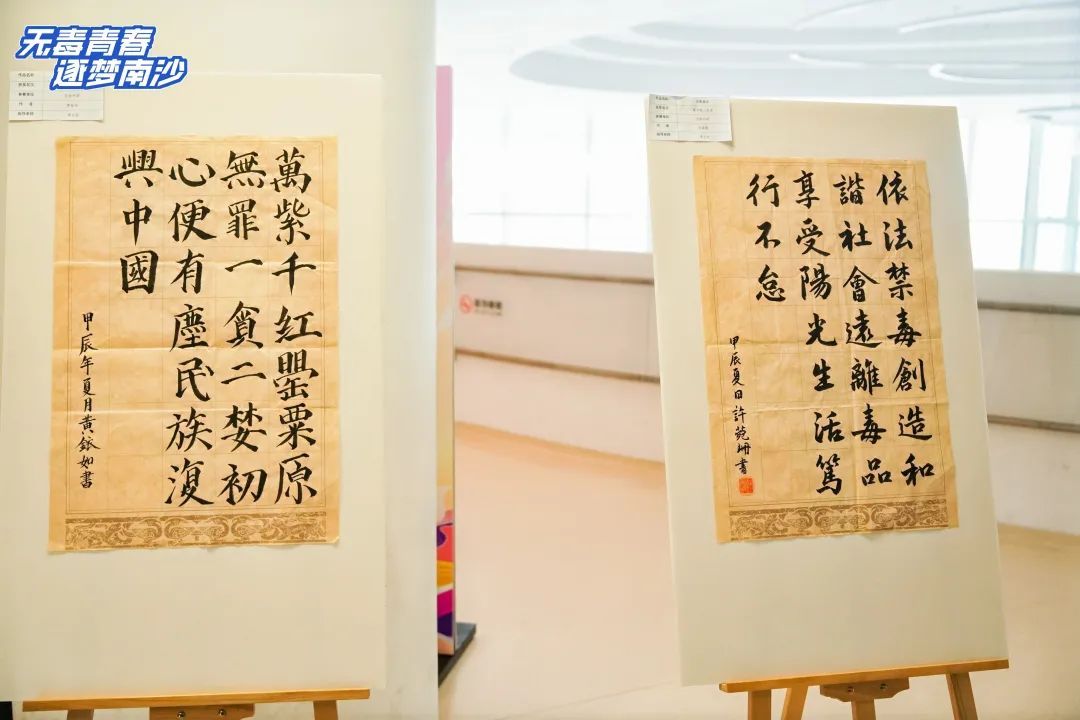 无毒青春
逐梦南沙
萬紫千红罌粟原
無罪一貪二婪初
心便有塵民族復
興中國
甲辰年夏月黄 如書
依法禁毒創造和
諧社會遠離毒品
享受陽光生活篤
行不怠
甲辰夏日許菀珊書